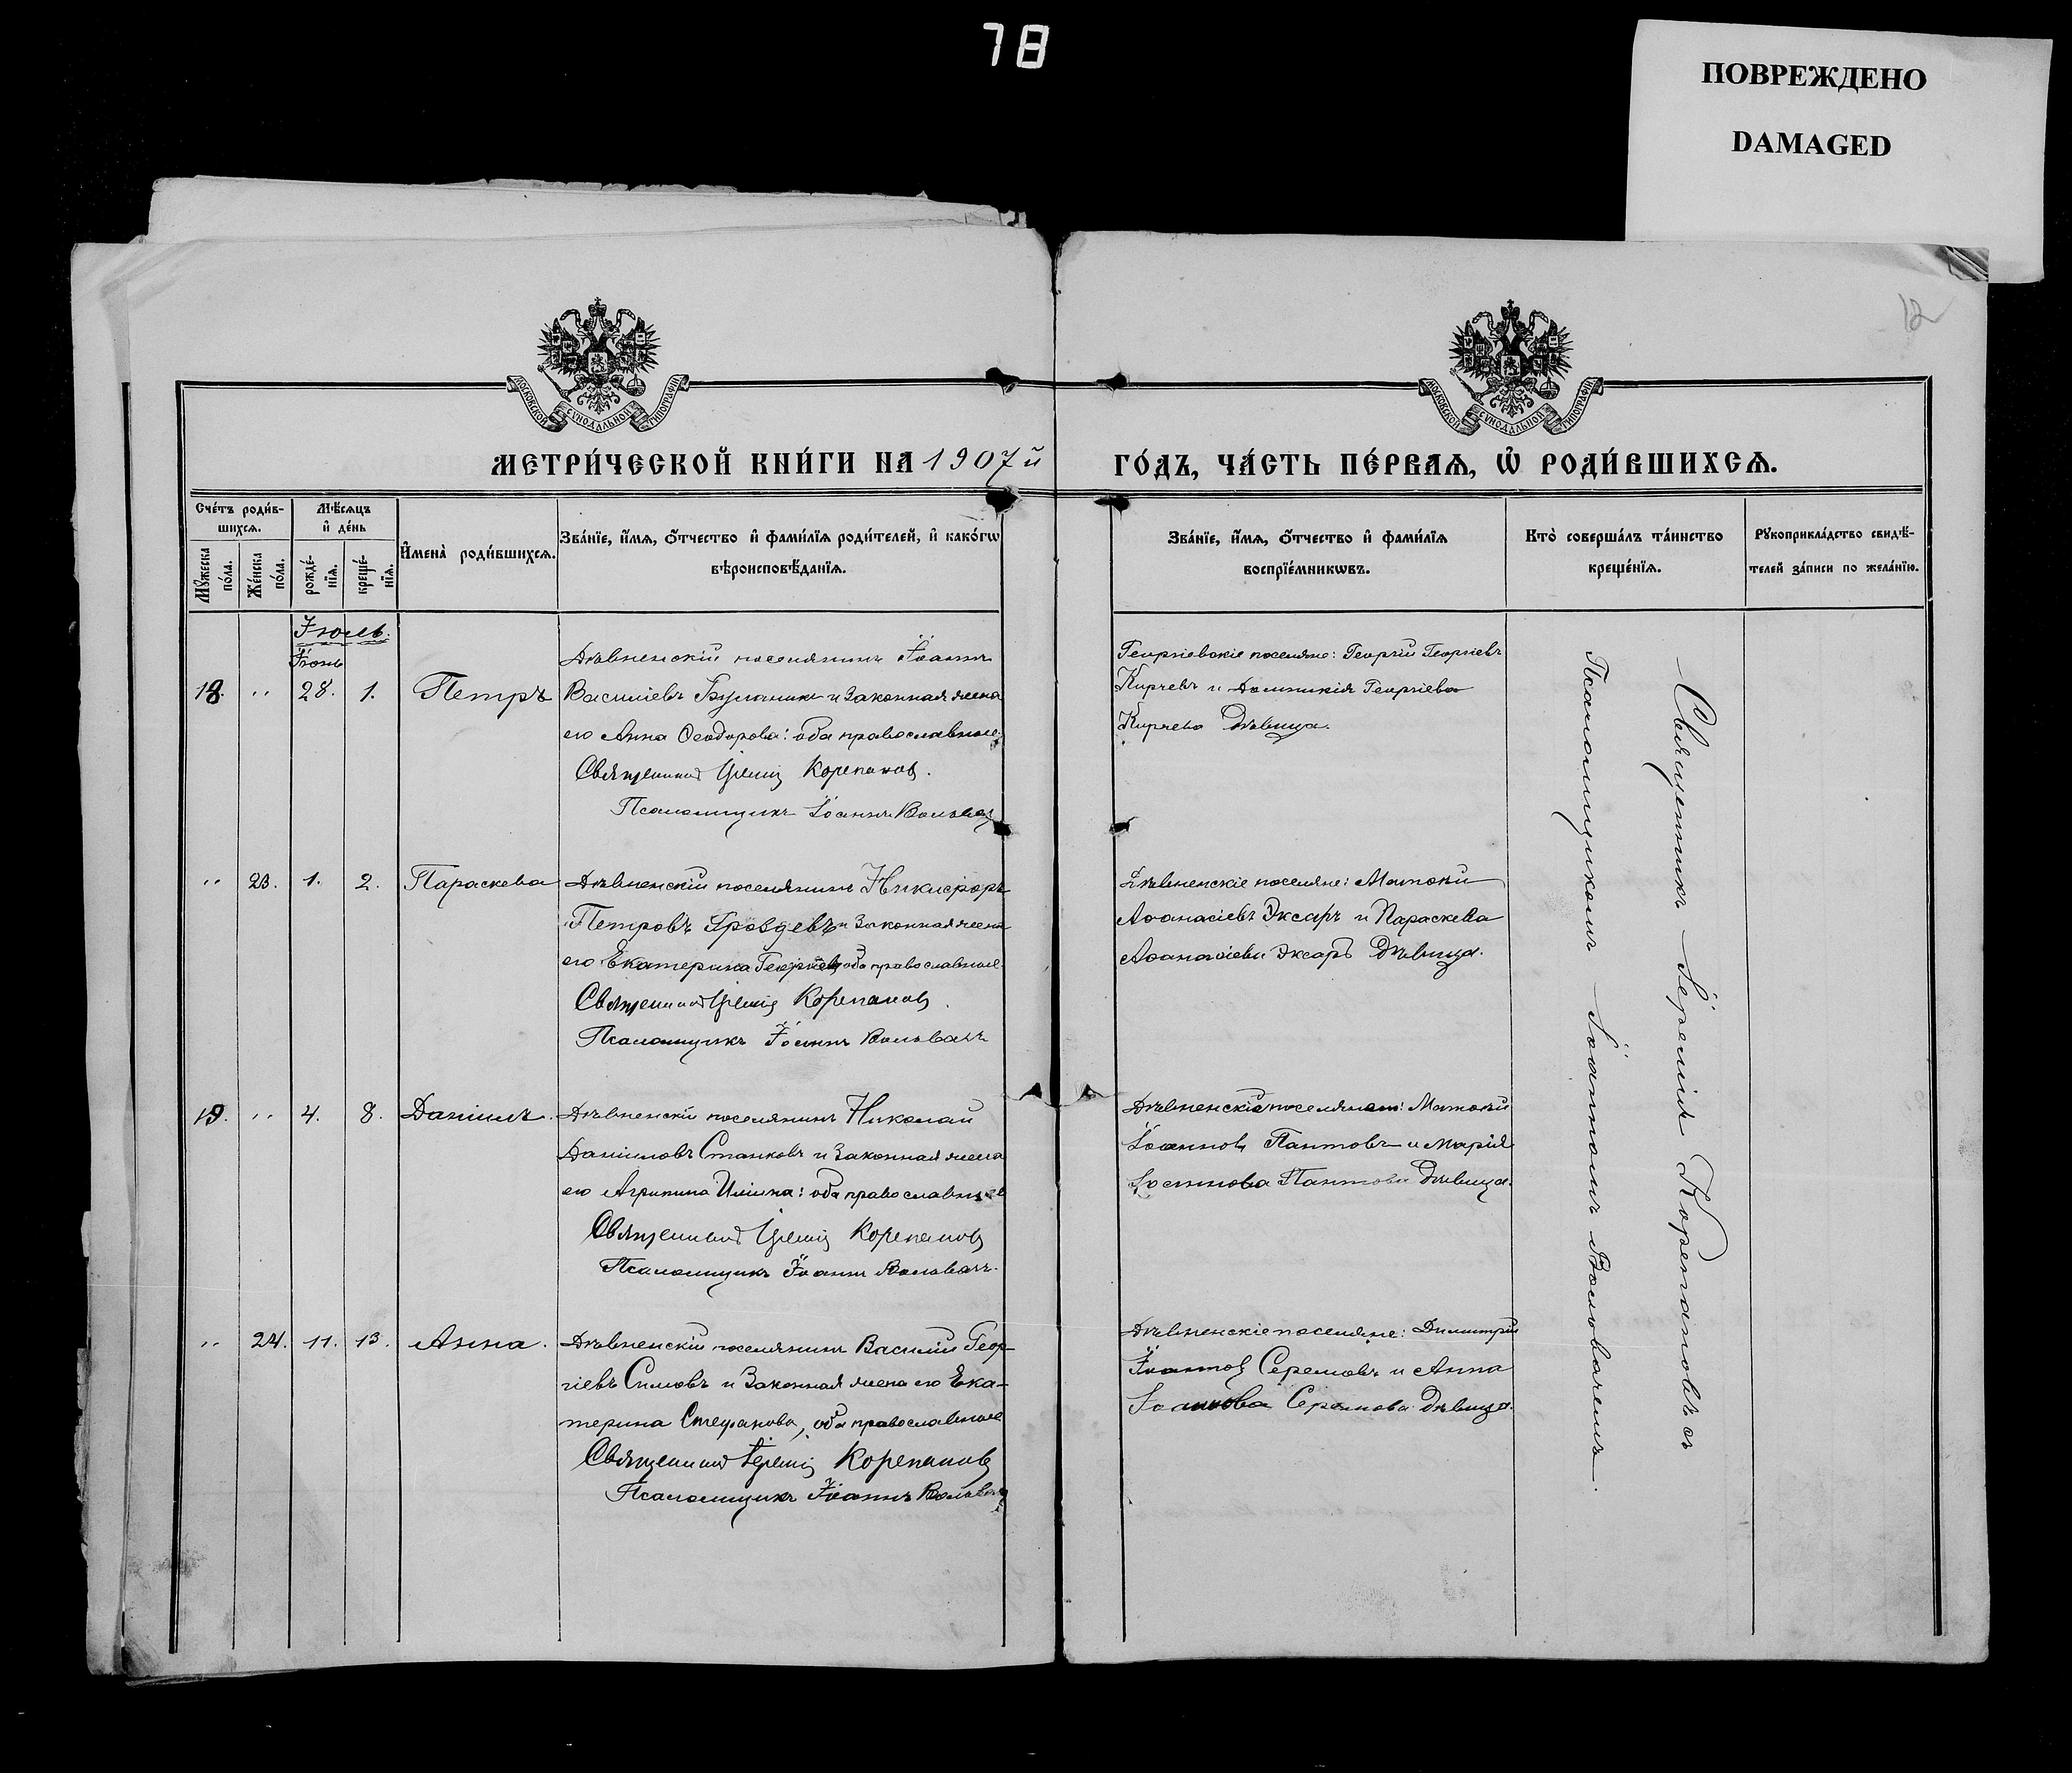 78
ПОВРЕЖДЕНО
DAMAGED
12
МОСКОВСКОЙ СѴНОДАЛЬНОЙ ТИПОГРАФІИ
МОСКОВСКОЙ СѴНОДАЛЬНОЙ ТИПОГРАФІИ
МЕТРИ́ЧЕСКОЙ КНИ́ГИ НА 1907й
ГО́ДЪ, ЧА́СТЬ ПЕ́РВАѦ, Ѡ҆ РОДИ́ВШИХСѦ.
Сче́тъ роди́в-
шихсѧ.
Мꙋ́жеска по́ла.
Же́нска по́ла.
Мѣ́сѧцъ
и҆ де́нь
рожде́-
нїѧ.
креще́-
нїѧ.
И҆мена̀ роди́вшихсѧ.
Зва́нїе, и҆́мѧ, ѻ҆́тчество и҆ фами́лїѧ роди́телей, и҆ како́гѡ
вѣроисповѣ́данїѧ.
Зва́нїе, и҆́мѧ, ѻ҆́тчество и҆ фами́лїѧ
воспрїе́мникѡвъ.
Кто̀ соверша́лъ та́инство
креще́нїѧ.
Рꙋкоприкла́дство свидѣ́-
телей за́писи по жела́нїю.
Іюль.
Іюнь
18. " 28. 1. Петръ
Дѣвненскій поселянинъ Іоаннъ
Василіевъ и законная жена
его Анна Ѳеодорова: оба православные.
Священникъ Іеремія Корепановъ.
Псаломщикъ Іоаннъ Воловачъ
Георгіевскіе поселяне: Георгій Георгіевъ
Кирчевъ и Домникія Георгіева
Кирчева Дѣвица.
" 23. 1. 2. Параскева
Дѣвненскій поселянинъ Никифоръ
Петровъ Гроздевъ и законная жена
его Екатерина Георгіева оба православные.
Священникъ Іеремія Корепановъ.
Псаломщикъ Іоаннъ Воловачъ
Дѣвненскіе поселяне: Матѳей
Аѳанасіевъ Эксаръ и Параскева
Аѳанасіева Эксаръ Дѣвица.
19. " 4. 8. Даніилъ.
Дѣвненскій поселянинъ Николай
Даніиловъ Станковъ и законная жена
его Агрипина Иліина: оба православные
Священникъ Іеремія Корепановъ
Псаломщикъ Іоаннъ Воловачъ.
Дѣвненскіе поселяне: Матѳей
Іоанновъ Пантовъ и Марія
Іоаннова Пантова Дѣвица.
" 24. 11. 13. Анна.
Дѣвненскій поселянинъ Василій Геор-
гіевъ Симовъ и законная жена его Ека-
терина Стефанова, оба православные
Священникъ Іеремія Корепановъ
Псаломщикъ Іоаннъ Воловачъ
Дѣвненскіе поселяне: Димитрій
Іоанновъ Серемовъ и Анна
Іоаннова Серемова Дѣвица.
Священникъ Іеремія Корепановъ съ
Псаломщикомъ Іоанномъ Воловачемъ.